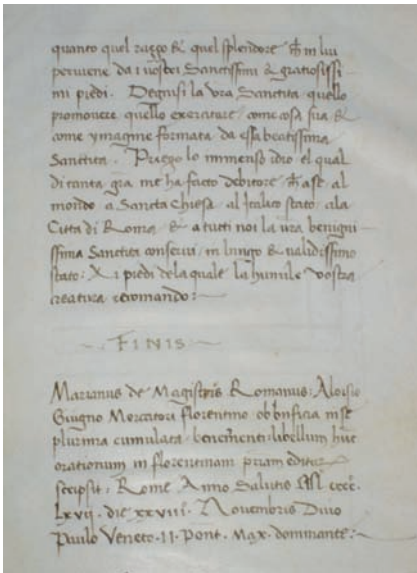 quanto quel razzo & quel splendore ch̄ in lui
perviene da i vostri Sanctissimi & gratiosissi-
mi piedi. Degnisi la vra Sanctita quello
promovere quello exercitare come cosa sua &
come ymagine formata da essa beatissima
Sanctita. Priego lo immenso idio el qual
di tanta gra me ha facto debitore ch̄ a se al
mondo a Sancta chiesa al Italico stato ala
Citta di Roma & a tutti noi la vra benigni
ssima Sanctita conservi in lungo & validissimo
stato: A i piedi dela quale la humile vostra
creatura recomando:
FINIS
Marianus de Magistris Romanus: Aloisio
Giugno Mercatori florentino ob bnficia in se
plurima cumulata benemerenti libellum hūc
orationum in florentinam priam editum
scripsit: Rome Anno Salutis M. cccc.
Lxvij. die xxviii. Novembris Divo
Paulo Veneto .II. Pont. Max. dominante: